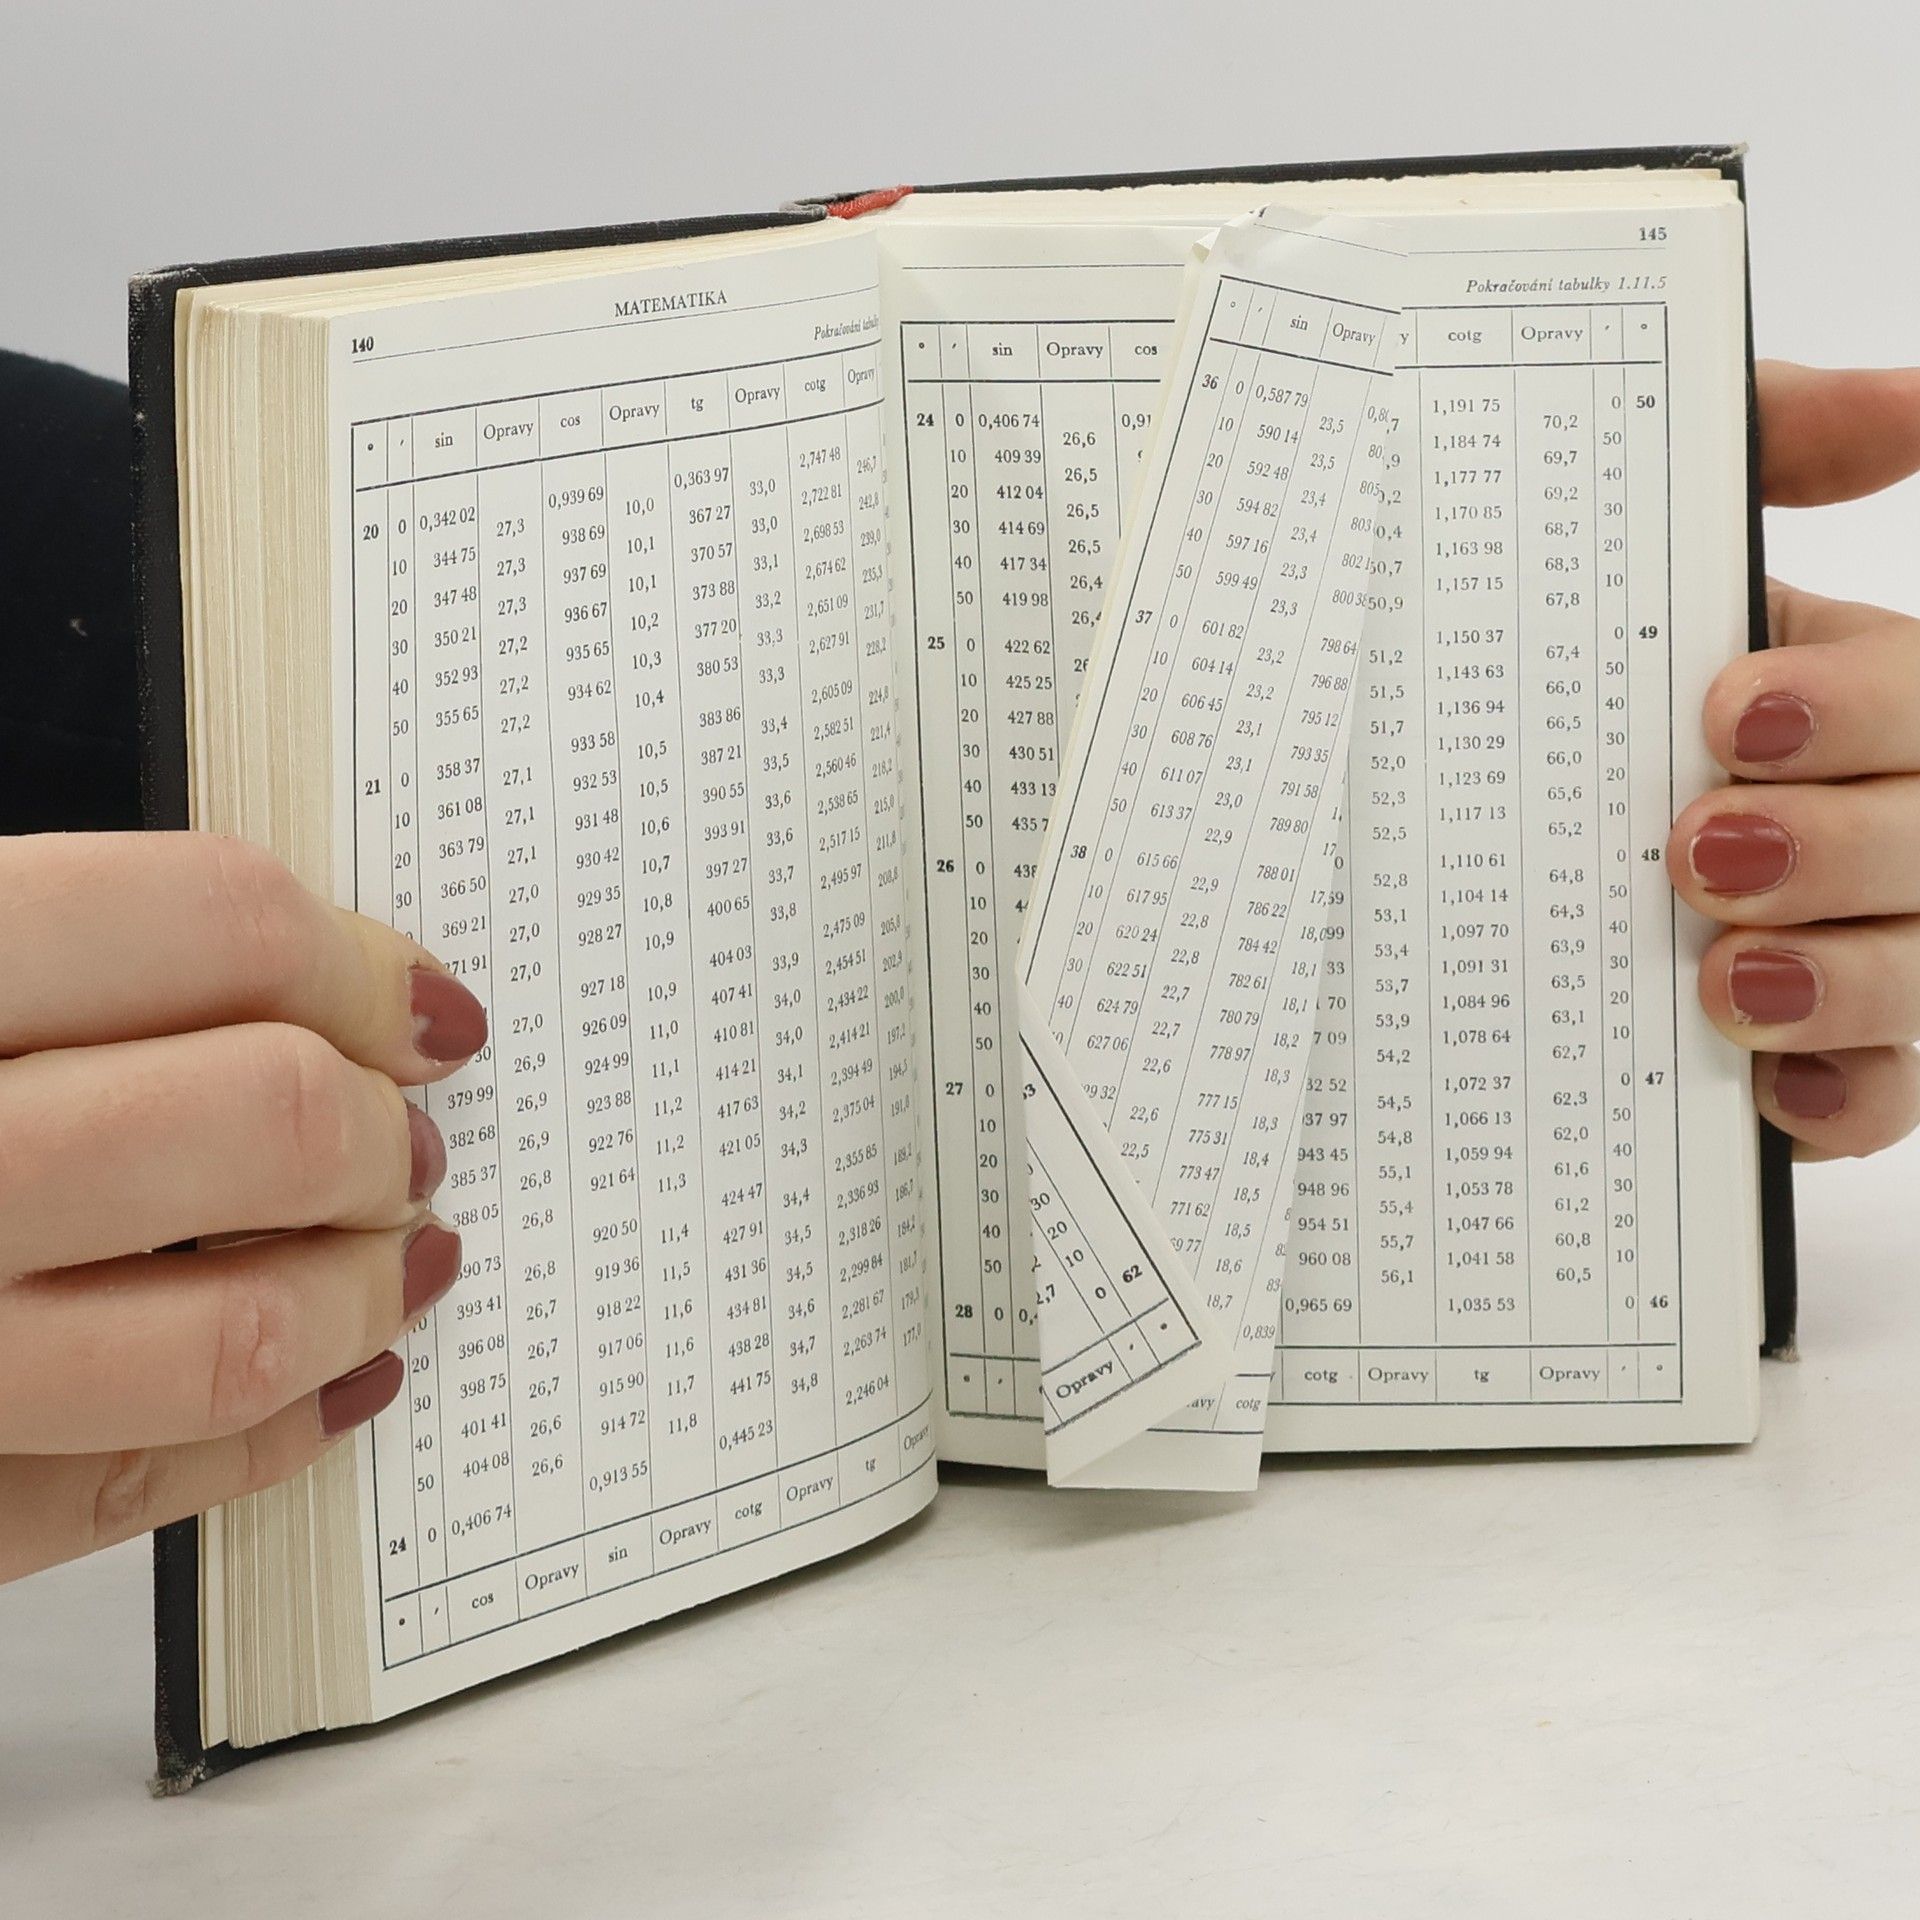 140
MATEMATIKA
° ′ sin Opravy cos Opravy tg Opravy cotg Opravy
20 0 0,342 02 27,3 0,939 69 10,0 0,363 97 33,0 2,747 48 246,7
10 344 75 27,3 938 69 10,1 367 27 33,0 2,722 81 242,8
20 347 48 27,3 937 69 10,1 370 57 33,1 2,698 53 239,0
30 350 21 27,2 936 67 10,2 373 88 33,2 2,674 62 235,3
40 352 93 27,2 935 65 10,3 377 20 33,3 2,651 09 231,7
50 355 65 27,2 934 62 10,4 380 53 33,3 2,627 91 228,2
21 0 358 37 27,1 933 58 10,5 383 86 33,4 2,605 09 224,8
10 361 08 27,1 932 53 10,5 387 21 33,5 2,582 51 221,4
20 363 79 27,1 931 48 10,6 390 55 33,6 2,560 46 218,2
30 366 50 27,0 930 42 10,7 393 91 33,6 2,538 65 215,0
369 21 27,0 929 35 10,8 397 27 33,7 2,517 15 211,8
71 91 27,0 928 27 10,9 400 65 33,8 2,495 97 208,8
27,0 927 18 10,9 404 03 33,9 2,475 09 205,8
30 26,9 926 09 11,0 407 41 34,0 2,454 51 202,9
379 99 26,9 924 99 11,1 410 81 34,0 2,434 22 200,0
382 68 26,9 923 88 11,2 414 21 34,1 2,414 21 197,2
385 37 26,8 922 76 11,2 417 63 34,2 2,394 49 194,5
388 05 26,8 921 64 11,3 421 05 34,3 2,375 04 191,8
390 73 26,8 920 50 11,4 424 47 34,4 2,355 85 189,2
393 41 26,7 919 36 11,5 427 91 34,5 2,336 93 186,7
20 396 08 26,7 918 22 11,6 431 36 34,5 2,318 26 184,2
30 398 75 26,7 917 06 11,6 434 81 34,6 2,299 84 181,7
40 401 41 26,6 915 90 11,7 438 28 34,7 2,281 67 179,3
50 404 08 26,6 914 72 11,8 441 75 34,8 2,263 74 177,0
24 0 0,406 74 0,913 55 0,445 23 2,246 04
° ′ cos Opravy sin Opravy cotg Opravy tg Opravy
° ′ sin Opravy cos
24 0 0,406 74 26,6 0,91
10 409 39 26,5
20 412 04 26,5
30 414 69 26,5
40 417 34 26,4
50 419 98
25 0 422 62
10 425 25
20 427 88
30 430 51
40 433 13
50
26 0
10
20
30
40
50
27 0
10
20
30
40
50
28 0
° ′
° ′ sin Opravy
36 0 0,587 79 23,5
10 590 14 23,5
20 592 48 23,4
30 594 82 23,4
40 597 16 23,3
50 599 49 23,3
37 0 601 82 23,2 798 64
10 604 14 23,2 796 88
20 606 45 23,1 795 12
30 608 76 23,1 793 35
40 611 07 23,0 791 58
50 613 37 22,9 789 80
38 0 615 66 22,9 788 01
10 617 95 22,8 786 22
20 620 24 22,8 784 42
30 622 51 22,7 782 61 18,1
40 624 79 22,7 780 79 18,2
627 06 22,6 778 97 18,3
22,6 777 15 18,3
22,5 775 31 18,4
773 47 18,5
771 62 18,5
18,6
18,7
cotg
30
20
10
0 62
Opravy ′ °
145
Pokračování tabulky 1.11.5
cotg Opravy ′ °
1,191 75 70,2 0 50
1,184 74 69,7 50
1,177 77 69,2 40
1,170 85 68,7 30
1,163 98 68,3 20
1,157 15 67,8 10
51,2 1,150 37 67,4 0 49
51,5 1,143 63 66,0 50
51,7 1,136 94 66,5 40
52,0 1,130 29 66,0 30
52,3 1,123 69 65,6 20
52,5 1,117 13 65,2 10
52,8 1,110 61 64,8 0 48
53,1 1,104 14 64,3 50
53,4 1,097 70 63,9 40
53,7 1,091 31 63,5 30
53,9 1,084 96 63,1 20
54,2 1,078 64 62,7 10
54,5 1,072 37 62,3 0 47
54,8 1,066 13 62,0 50
943 45 55,1 1,059 94 61,6 40
948 96 55,4 1,053 78 61,2 30
954 51 55,7 1,047 66 60,8 20
960 08 56,1 1,041 58 60,5 10
0,965 69 1,035 53 0 46
cotg Opravy tg Opravy ′ °